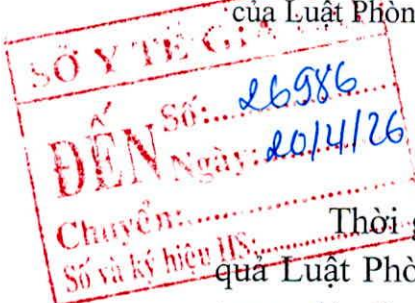 của Luật Phòn
SỞ Y TẾ GI
ĐẾN
Số: 26986
Ngày: 20/4/26
Chuyển:
Số và ký hiệu HS:
Thời g
quả Luật Phò